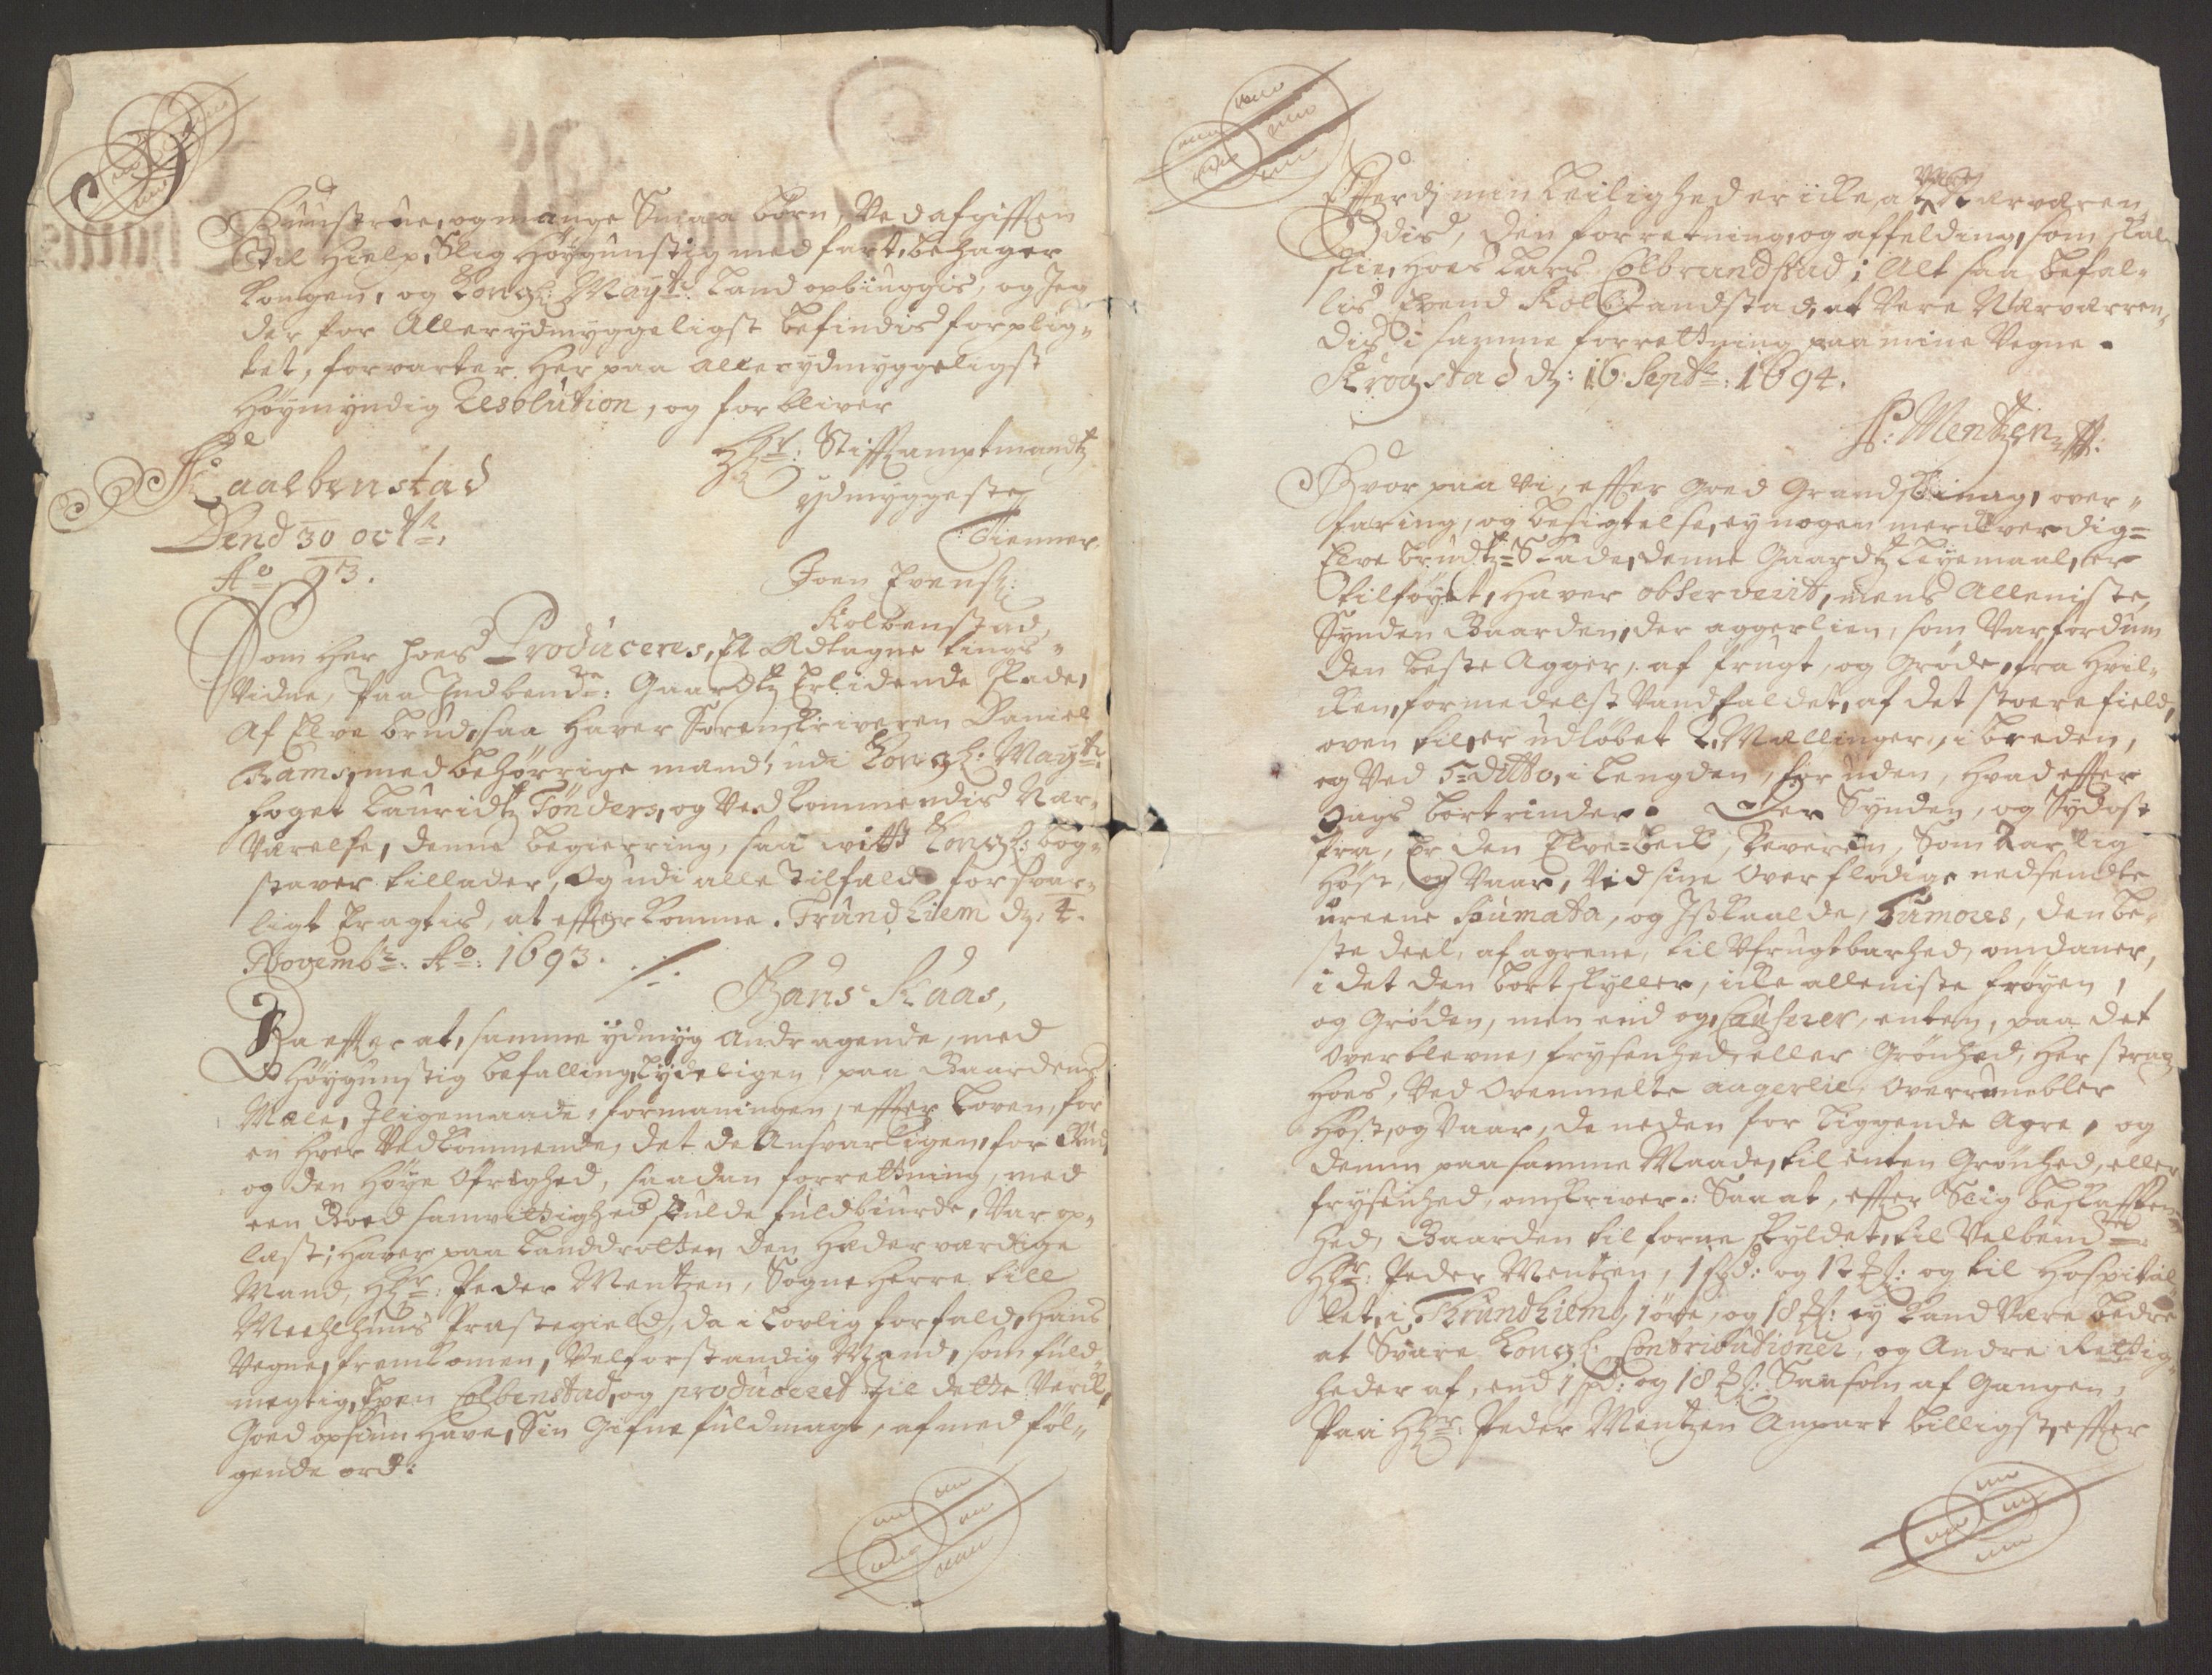 Huustrue, og mange Smaa børn, Ved afgifften
til Hielp, Slig Høygunstig medfart, behager
kongen, og Kongl: Maytz: Land opbuggis, og Jeg
der for Allerydmyggeligst befindis forplig-
tet, forvarter her paa allerydmyggeligst
Høymyndig Resolution, og forbliver
Kaalbenstad
Dend 30 octr.
Ao 93.
Hr: Stifftamptmandtz
ydmyggeste
Tienner
Joen Evens:
Kolbenstad
Som her hoes Produceres, Et Udtagne tings-
Vidne, Paa Indbente: Gaardtz Erlidende skade,
Af Elve brud, saa haver Sorenskriveren Daniel
Rams, med behørrige mænd, udi Kongl: Maytz:
foget Lauridtz Tønders, og Vedkommendis Nær-
Værelse, denne begierring, saa vitt Kongl: bog-
staver tillader, Og udi alle Tilfælde forsvar-
ligt Eragtis, at effterkomme. Trundhiem dz. 4.
Novembr: Ao: 1693.
Hans Kaas,
Da effter at, samme ydmyg Andragende, med
Høygunstig befalling, tydeligen, paa Gaardens
Mæle, Iligemaade, formaningen, effter Loven, for
en hver Vedkommende, det de Ansvarligen, for Gud,
og den Høye Øfrighed, saadan forrettning, med
een Goed samvittighed skulde fuldbiurde, Var op-
læst; haver paa Landdrotten den Hæderværdige
Mand, Hr: Peder Mentzen, Sogne Herre till
Meelhuus Præstegield, da i Lovlig forfald, hans
Vegne, fremkomen, Velforstandig Mand, som fuld-
megtig, Even Colbenstad, og produceret til dette Verk,
Goed opsiun have, Sin Gifne fuldmagt, af med føl-
gende ord:
Efferdj min Leilighed er icke, at Være Nærværen-
dis, den forretning, og affelding, som skal
skie, hoes Lars Colbrandstad; Alt saa befal-
lis Evend Kolbrandstad, at Vere Nærværren-
dis i samme forrettning paa mine Vegne.
Krogstad dz: 16 Septr: 1694.
P: Mentzen
Hvor paa Vi, effter Goed Grandskning, over-
faring, og besigtelse, ey nogen merckverdig-
Elve brudtz-Skade, denne Gaardtz Leyemaal, er
tilføyet, haver observeirt, mens Alleniste,
Synden Gaarden, der aggerlien, som Var fordum
den beste Agger, af frugt, og Grøde, fra hvil-
cken, formedelst Vandfaldet, af det store field,
oven til, er udløbet 2. Mællinger, i breden,
og Ved 5 ditto, i lengden, for uden, hvad effter
Haanden dags bortrinder. Der Synden, og Sydost
fra, Er den Elve-beck, Reveren, Som aarlig
Høst, og Vaar, Ved sine Overflødige nedsendte
ureene spumata, og Iszkaalde, Tumores, den be-
ste deel, af agrene, til Ufrugtbarhed, omdaner,
i det den bortskyller, icke alleniste frøyen,
og Grøden, men end og, Causerer, enten, paa det
Overblevne, frysenhed, eller Grønhed, her strax
hoes, Ved Ovenmelte aagerlie, Overrumbler
Høst, og Vaar, de neden for Liggende Agre, og
dennem paa samme Maade, til enten Grønhed, eller
frysenhed, omskriver. Saa at, effter Slig beskaffen-
hed, Gaarden tilforne skyldet, til Velbemte:
Hr: Peder Mentzen, 1 spd: og 12 ℳ: og til Hospital-
let, i Thrundhiem, 1 øre, og 18 ℳ: ey kand Være bedre
at Svare Kongl: Contributioner, og Andre Rettig-
heder af, end 1 spd: og 18 ℳ: Saasom af Gangen,
Paa Hr: Peder Mentzen Anpart billigst, effter